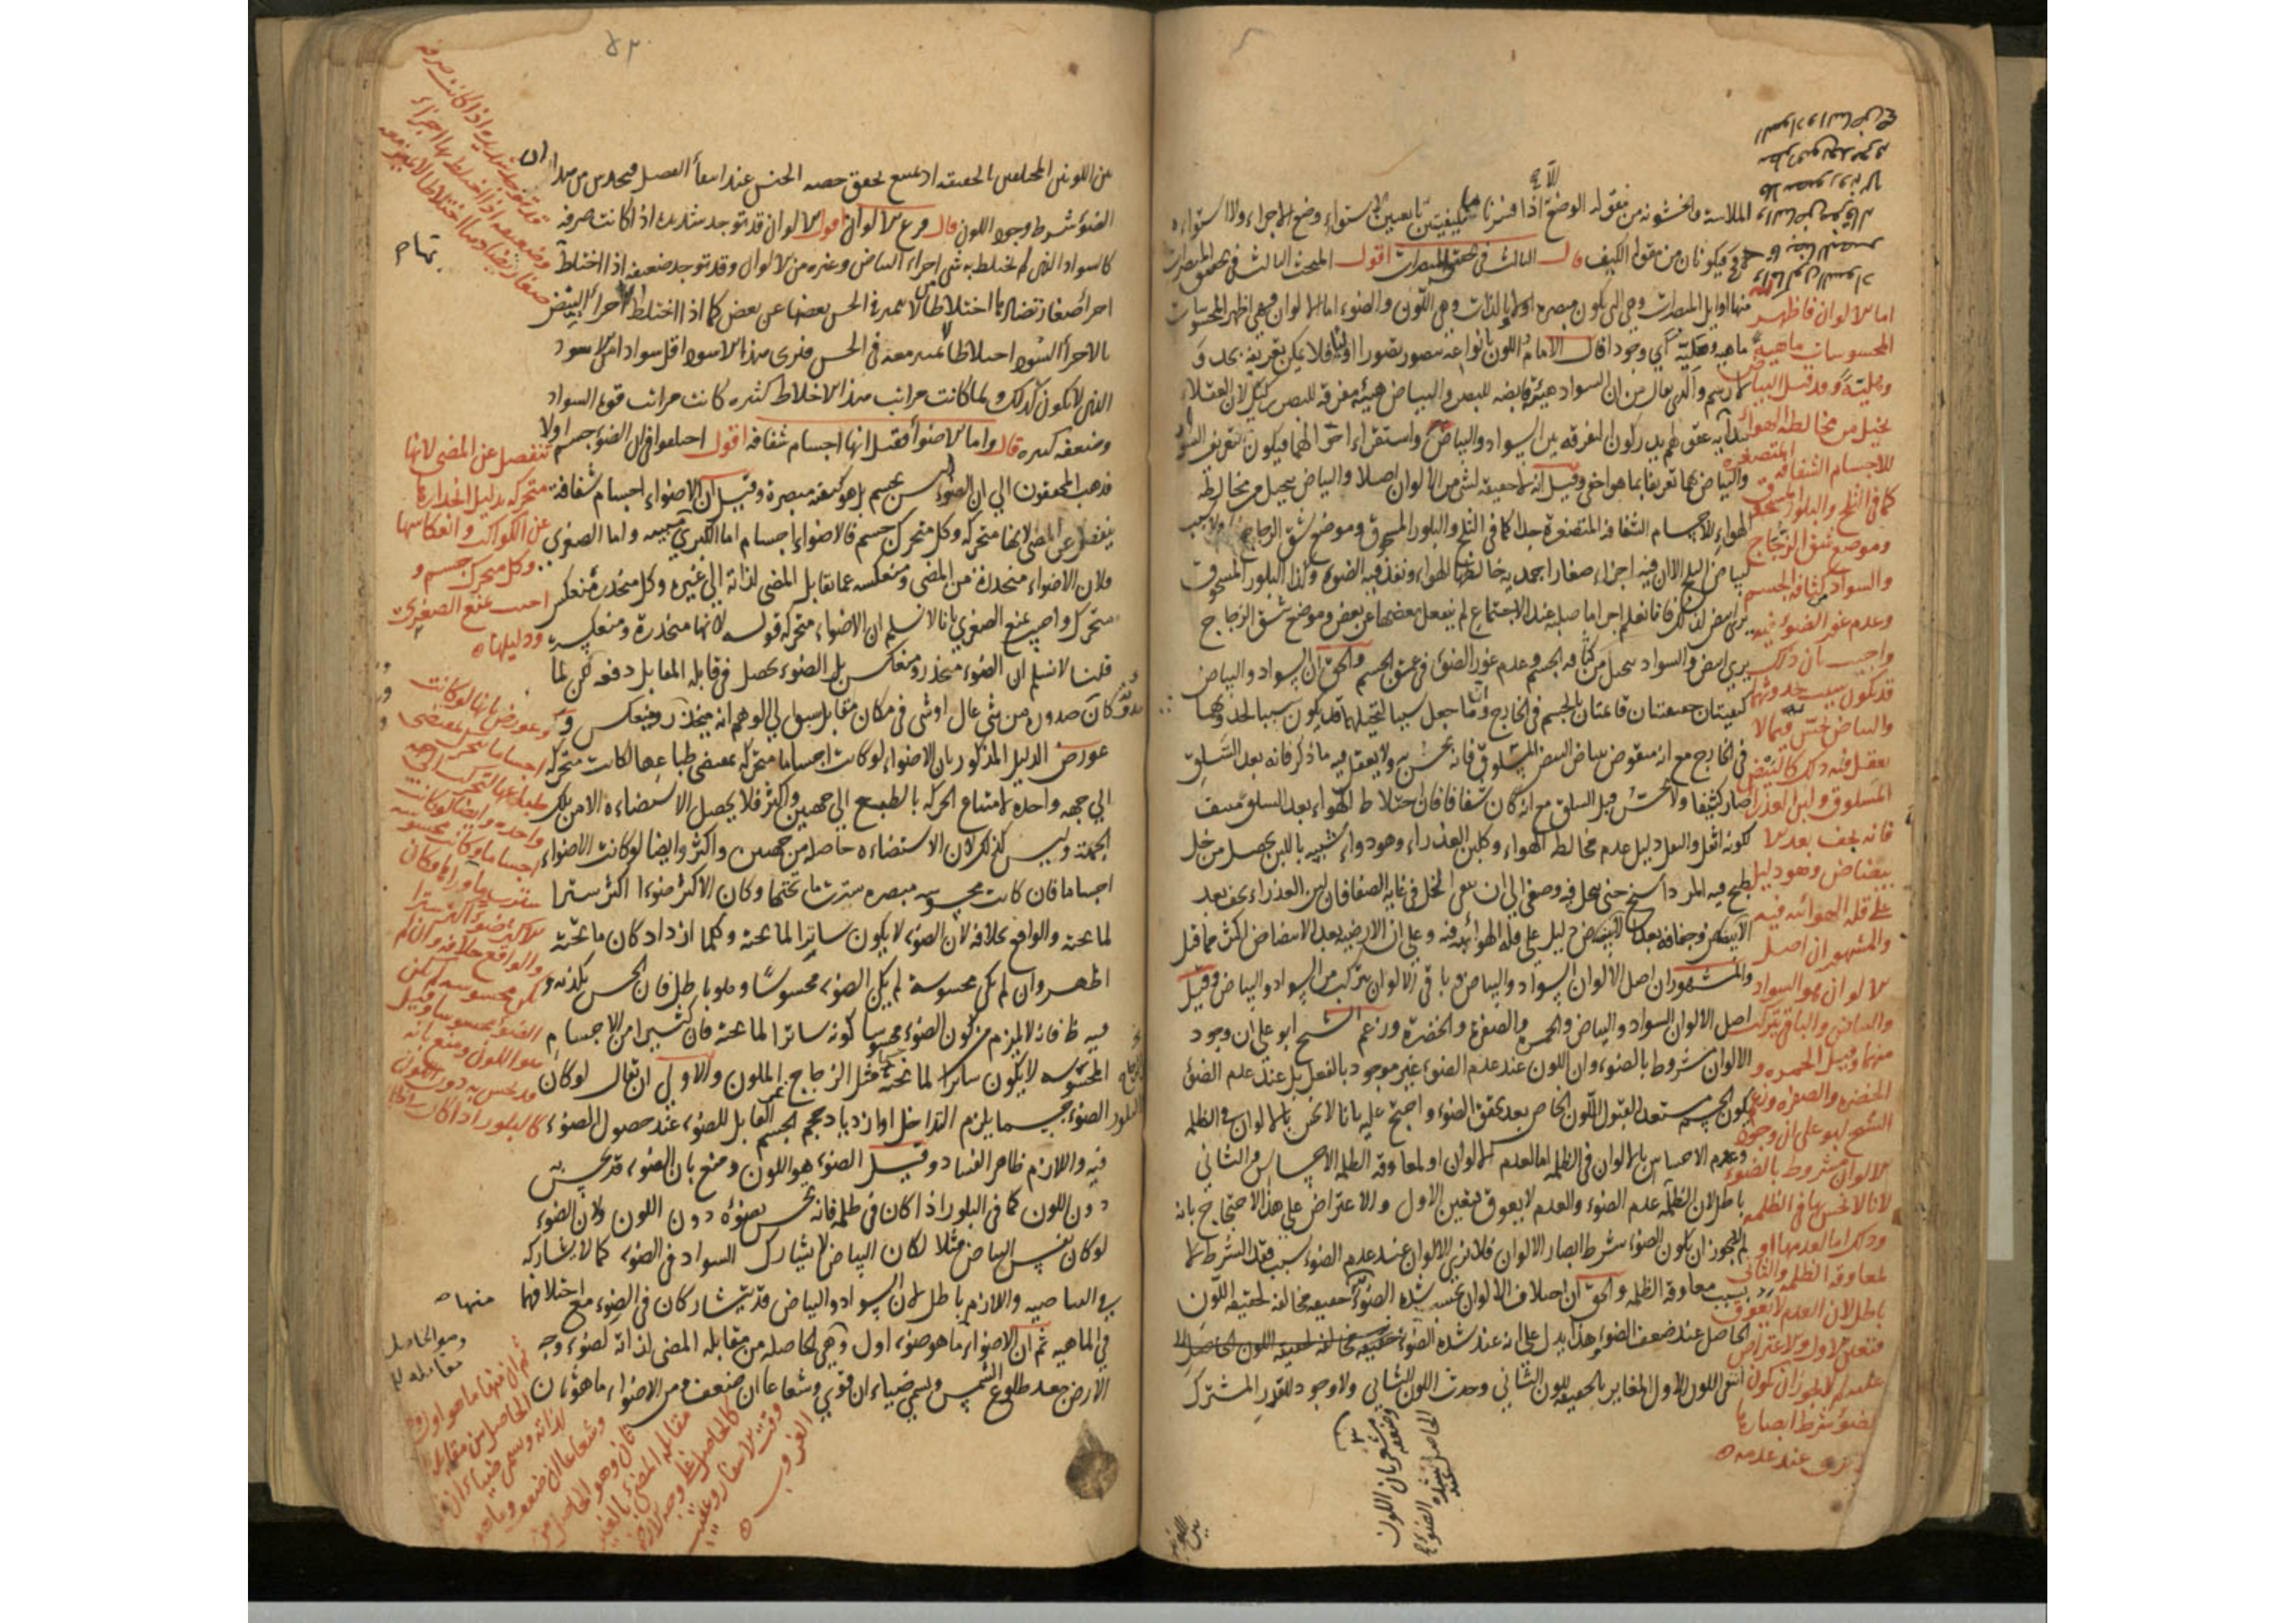 الملاسة والخشونة من مقولة الوضع اذا فسرنا باستواء وضع الاجزاء ولا استواءه
فيكونان من مقولة الكيف قال الثالث في تحقيق المبصرات اقول المبحث الثالث في تحقيق المبصرات
منها اوايل المبصرات وهي التي يكون مبصرة اولا وبالذات وهي اللون والضوء اما الالوان فهي اظهر المحسوسات
ماهية وهلية اي وجودا قال الامام اللون بانواعه متصور تصورا اوليا فلا يمكن تعريفه بحد و
لا رسم والذي يقال من ان السواد هيئة قابضة للبصر والبياض هيئة مفرقة للبصر ركيك لان العقلاء
ببداية عقولهم يدركون التفرقة بين السواد والبياض واستقراء احوالهما فيكون تعريف السواد
والبياض بهما تعريفا بما هو اخفى وقيل انه لا حقيقة لشيء من الالوان اصلا والبياض يتخيل من مخالطة
الهواء للاجسام الشفافة المتصغرة جدا كما في الثلج والبلور المسحوق وموضع شق الزجاج
فيه اجزاء صغارا جمدية خالطها الهواء ونفذ فيه الضوء وكذا البلور المسحوق
صلبة عند الاجتماع لم ينفعل بعضها عن بعض وموضع شق الزجاج
يرى ابيض والسواد يتخيل من كثافة الجسم وعدم غور الضوء في عمق الجسم والحق ان السواد والبياض
كيفيتان حقيقيتان قائمتان بالجسم في الخارج وما جعل سببا لتخيلهما قد يكون سببا لحدوثهما
في الخارج مع انه منقوض ببياض البيض المسلوق فانه يحس به ولا يعقل فيه ما ذكر فانه بعد السلق
صار كثيفا ولا يحس قبل السلق مع انه كان شفافا فان اختلاط الهواء بعد السلق منتف
كونه اثقل والثقل دليل عدم مخالطة الهواء وكلبن العذراء وهو دواء شبيه باللبن يحصل من خل
طبخ فيه المرداسنج حتى ينحل فيه وصفي الى ان يبقى الخل في غاية الصفا فان لبن العذراء يجف بعد
الابيضاض وجفافه بعد الابيضاض دليل على قلة الهوائية فيه وعلى ان الارضية بعد الابيضاض اكثر مما قبل
والمشهور ان اصل الالوان السواد والبياض وباقي الالوان يتركب من السواد والبياض وقيل
اصل الالوان السواد والبياض والحمرة والصفرة والخضرة وزعم الشيخ ابو علي ان وجود
الالوان مشروط بالضوء وان اللون عند عدم الضوء غير موجود بالفعل بل عند عدم الضوء
يكون الجسم مستعد لقبول اللون الخاص بعد تحقق الضوء واحتج عليه بانا لا نحس بالالوان في الظلمة
وعدم الاحساس بالالوان في الظلمة اما لعدم الالوان او لمعاوقة الظلمة الاحساس والثاني
باطل لان الظلمة عدم الضوء والعدم لا يعوق فتعين الاول والاعتراض على هذا الاحتجاج بانه
لم لا يجوز ان يكون الضوء شرط ابصار الالوان فلا نرى الالوان عند عدم الضوء بسبب فقد الشرط لا
بسبب معاوقة الظلمة والحق ان اختلاف الالوان بحسب شدة الضوء حقيقة مخالفة لحقيقة اللون
الحاصل عند ضعف الضوء هذا يدل على انه عند شدة الضوء
انتفى اللون الاول المغاير بالحقيقة للون الثاني وحدث اللون الثاني ولا وجود للقدر المشترك
اما الالوان فاظهر
المحسوسات ماهية
وهلية وقد قيل البياض
يتخيل من مخالطة الهواء
للاجسام الشفافة المتصغرة
كما في الثلج والبلور المسحوق
وموضع شق الزجاج
والسواد من كثافة الجسم
وعدم غور الضوء فيه
واجيب بان ذلك
قد يكون سبب حدوثهما
والبياض يحس فيما لا
يعقل فيه ذلك كالبيض
المسلوق ولبن العذراء
فانه يجف بعد الا
بيضاض وهو دليل
على قلة الهوائية فيه
والمشهور ان اصل
الالوان هو السواد
والبياض والباقي يتركب
منهما وقيل الحمرة و
الخضرة والصفرة وزعم
الشيخ ابو علي ان وجود
الالوان مشروط بالضوء
لانا لا نحس بها في الظلمة
وذلك اما لعدمها او
لمعاوقة الظلمة والثاني
باطل لان العدم لا يعوق
فتعين الاول والاعتراض
عليه لم لا يجوز ان يكون
الضوء شرط ابصارها
عند عدمه
عن اللونين المختلفين بالحقيقة اذ يمتنع تحقق حصة الجنس عند انتفاء الفصل فيحدس من هذا ان
الضوء شرط وجود اللون قال فرع الالوان اقول الالوان قد توجد شديدة اذا كانت صرفة
كالسواد الذي لم يختلط به شيء من اجزاء البياض وغيره من الالوان وقد توجد ضعيفة اذا اختلط
اجزاء صغار تضادها اختلاطا لا يتميز في الحس بعضها عن بعض كما اذا اختلط الاجزاء البيض
بالاجزاء السود اختلاطا لا يتميز معه في الحس فنرى هذا الاسود اقل سوادا من الاسود
الذي لا يكون كذلك ولما كانت مراتب هذا الاختلاط كثيرة كانت مراتب قوة السواد
وضعفه كثيرة قال واما الاضواء فقيل انها اجسام شفافة اقول اختلفوا في ان الضوء جسم او لا
فذهب المحققون الى ان الضوء ليس بجسم بل هو كيفية مبصرة وقيل ان الاضواء اجسام شفافة
ينفصل عن المضيء لانها متحركة وكل متحرك جسم فالاضواء اجسام اما الكبرى فبينة واما الصغرى
فلان الاضواء منحدرة من المضيء ومنعكسة عما يقابل المضيء لذاته الى غيره وكل منحدر ومنعكس
متحرك واجيب بمنع الصغرى بانا لا نسلم ان الاضواء متحركة قوله لانها منحدرة ومنعكسة
قلنا لا نسلم ان الضوء منحدر ومنعكس بل الضوء يحصل في قابله المقابل دفعة لكن لما
كان حدوثه من شيء عال او شيء في مكان مقابل سبق الى الوهم انه ينحدر وينعكس و
عورض الدليل المذكور بان الاضواء لو كانت اجساما متحركة بمقتضى طباعها لكانت متحركة
الى جهة واحدة لامتناع الحركة بالطبع الى جهتين واكثر فلا يحصل الاستضاءة الا من تلك
الجهة وليس كذلك لان الاستضاءة حاصلة من جهتين واكثر وايضا لو كانت الاضواء
اجساما فان كانت محسوسة مبصرة سترت ما تحتها وكان الاكثر ضوءا اكثر سترا
لما تحته والواقع بخلافه لان الضوء لا يكون ساترا لما تحته وكلما ازداد كان ما تحته
اظهر وان لم تكن محسوسة لم يكن الضوء محسوسا وهو باطل فان الحس يكذبه و
فيه نظر فانه لا يلزم من كون الضوء محسوسا كونه ساترا لما تحته فان كثيرا من الاجسام
المحسوسة لا يكون ساترا لما تحته مثل الزجاج الملون والاولى ان يقال لو كان
الضوء جسما يلزم التداخل او ازدياد حجم الجسم القابل للضوء عند حصول الضوء
فيه واللازم ظاهر الفساد وقيل الضوء هو اللون ومنع بان الضوء قد يحس به
دون اللون كما في البلور اذا كان في ظلمة فانه يحس بضوءه دون اللون ولان الضوء
لو كان نفس البياض مثلا لكان البياض لا يشارك السواد في الضوء كما لا يشاركه
في البياضية واللازم باطل لان السواد والبياض قد يتشاركان في الضوء مع اختلافهما
في الماهية ثم ان الاضواء منها ما هو ضوء اول وهي الحاصلة من مقابلة المضيء لذاته كضوء وجه
الارض بعد طلوع الشمس ويسمى ضياء ان قوي وشعاعا ان ضعف ومن الاضواء ما هو ثان
قد توجد شديدة اذا كانت صرفة
وضعيفة اذا اختلط بها اجزاء
صغار تضادها اختلاطا لا يتميز معه
تنفصل عن المضيء لانها
متحركة بدليل انحدارها
عن الكواكب وانعكاسها
وكل متحرك جسم و
اجيب بمنع الصغرى
ودليلها
وعورض بانها لو كانت
اجساما متحركة بمقتضى
طباعها لتحركت الى جهة
واحدة وايضا لو كانت
اجساما وكانت محسوسة
سترت ما وراءها وكان
الاكثر ضوءا اكثر سترا
والواقع خلافه وان لم
تكن محسوسة لم يكن
الضوء محسوسا وقيل
هو اللون ومنع بانه
قد يحس به دون اللون
كالبلور اذا كان
ثم ان منها ما هو اول و
الحاصل من مقابلة
لذاته ويسمى ضياء ان قوي
وشعاعا ان ضعف ومنها
ثان وهو الحاصل من
مقابلة المضيء بالغير
كالحاصل على وجه الارض
وقت الاسفار وعقيب
الغروب